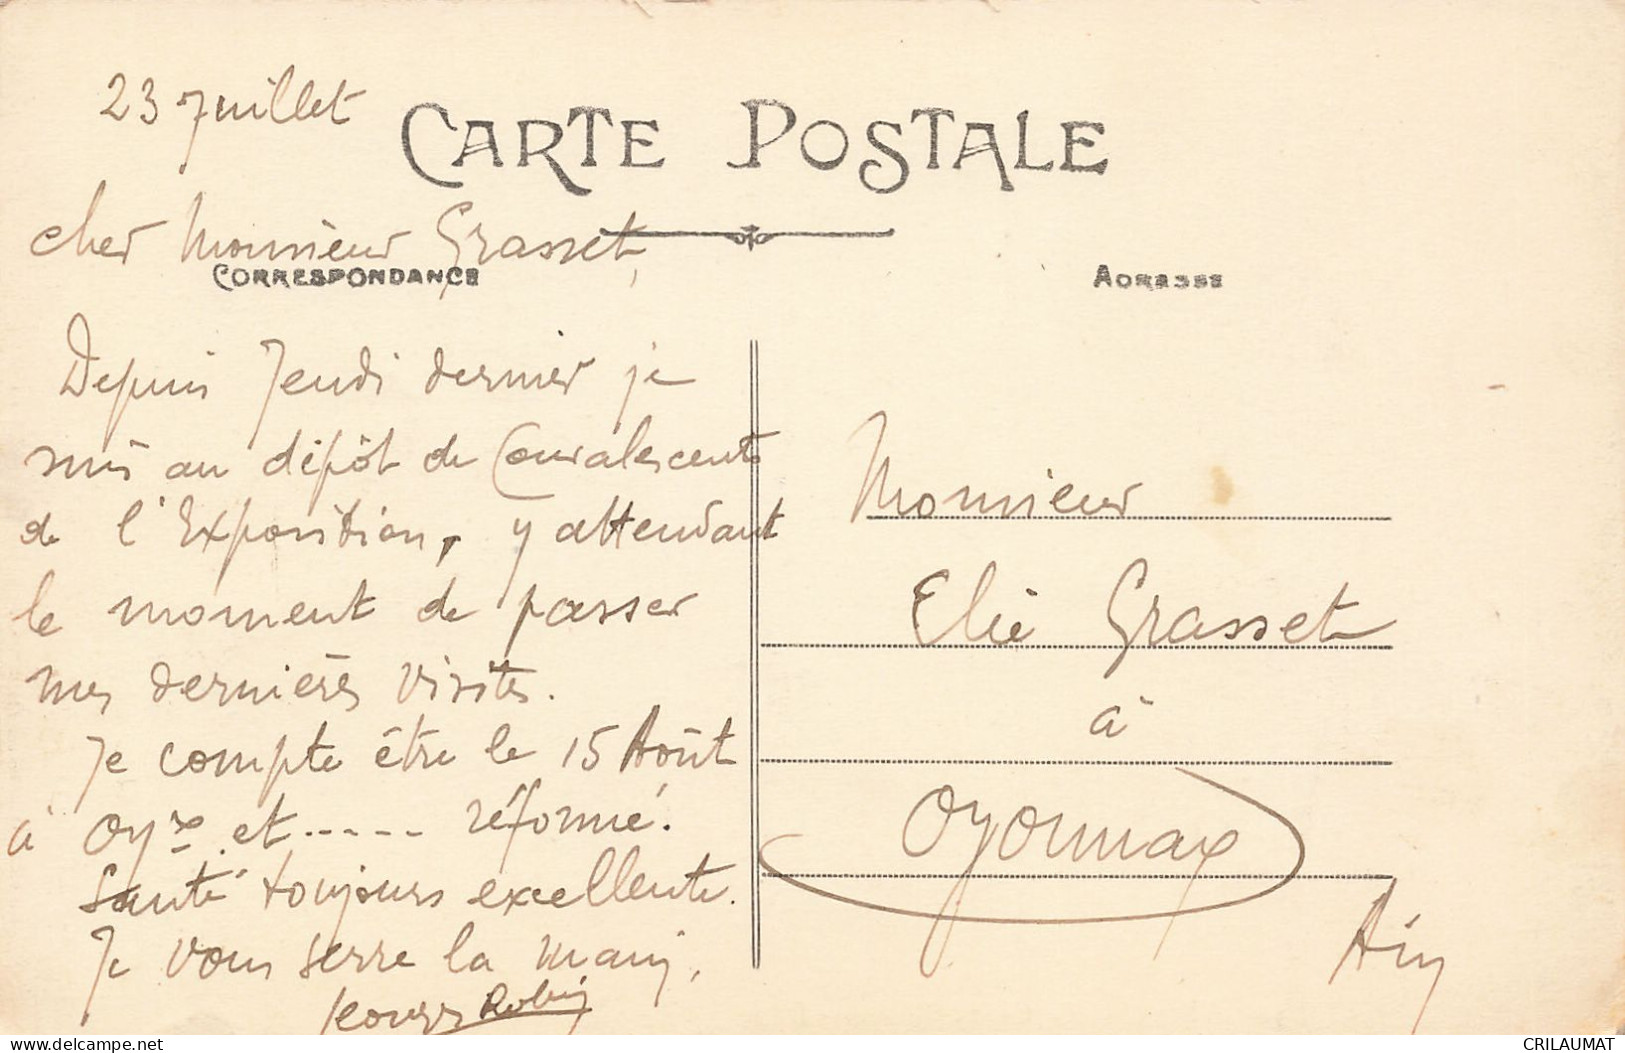 23 Juillet
CARTE POSTALE
cher Monsieur Grasset,
CORRESPONDANCE
ADRESSE
Depuis Jeudi dernier je
suis au dépôt de Convalescents
de l'Exposition, y attendant
le moment de passer
mes dernières visites.
Je compte être le 15 Août
à Oyx et ----- réformé.
Santé toujours excellente.
Je vous serre la main,
Robin
Monsieur
Elie Grasset
à
Oyonnax
Ain
delcampe.net
23 mm
CRILAUMAT